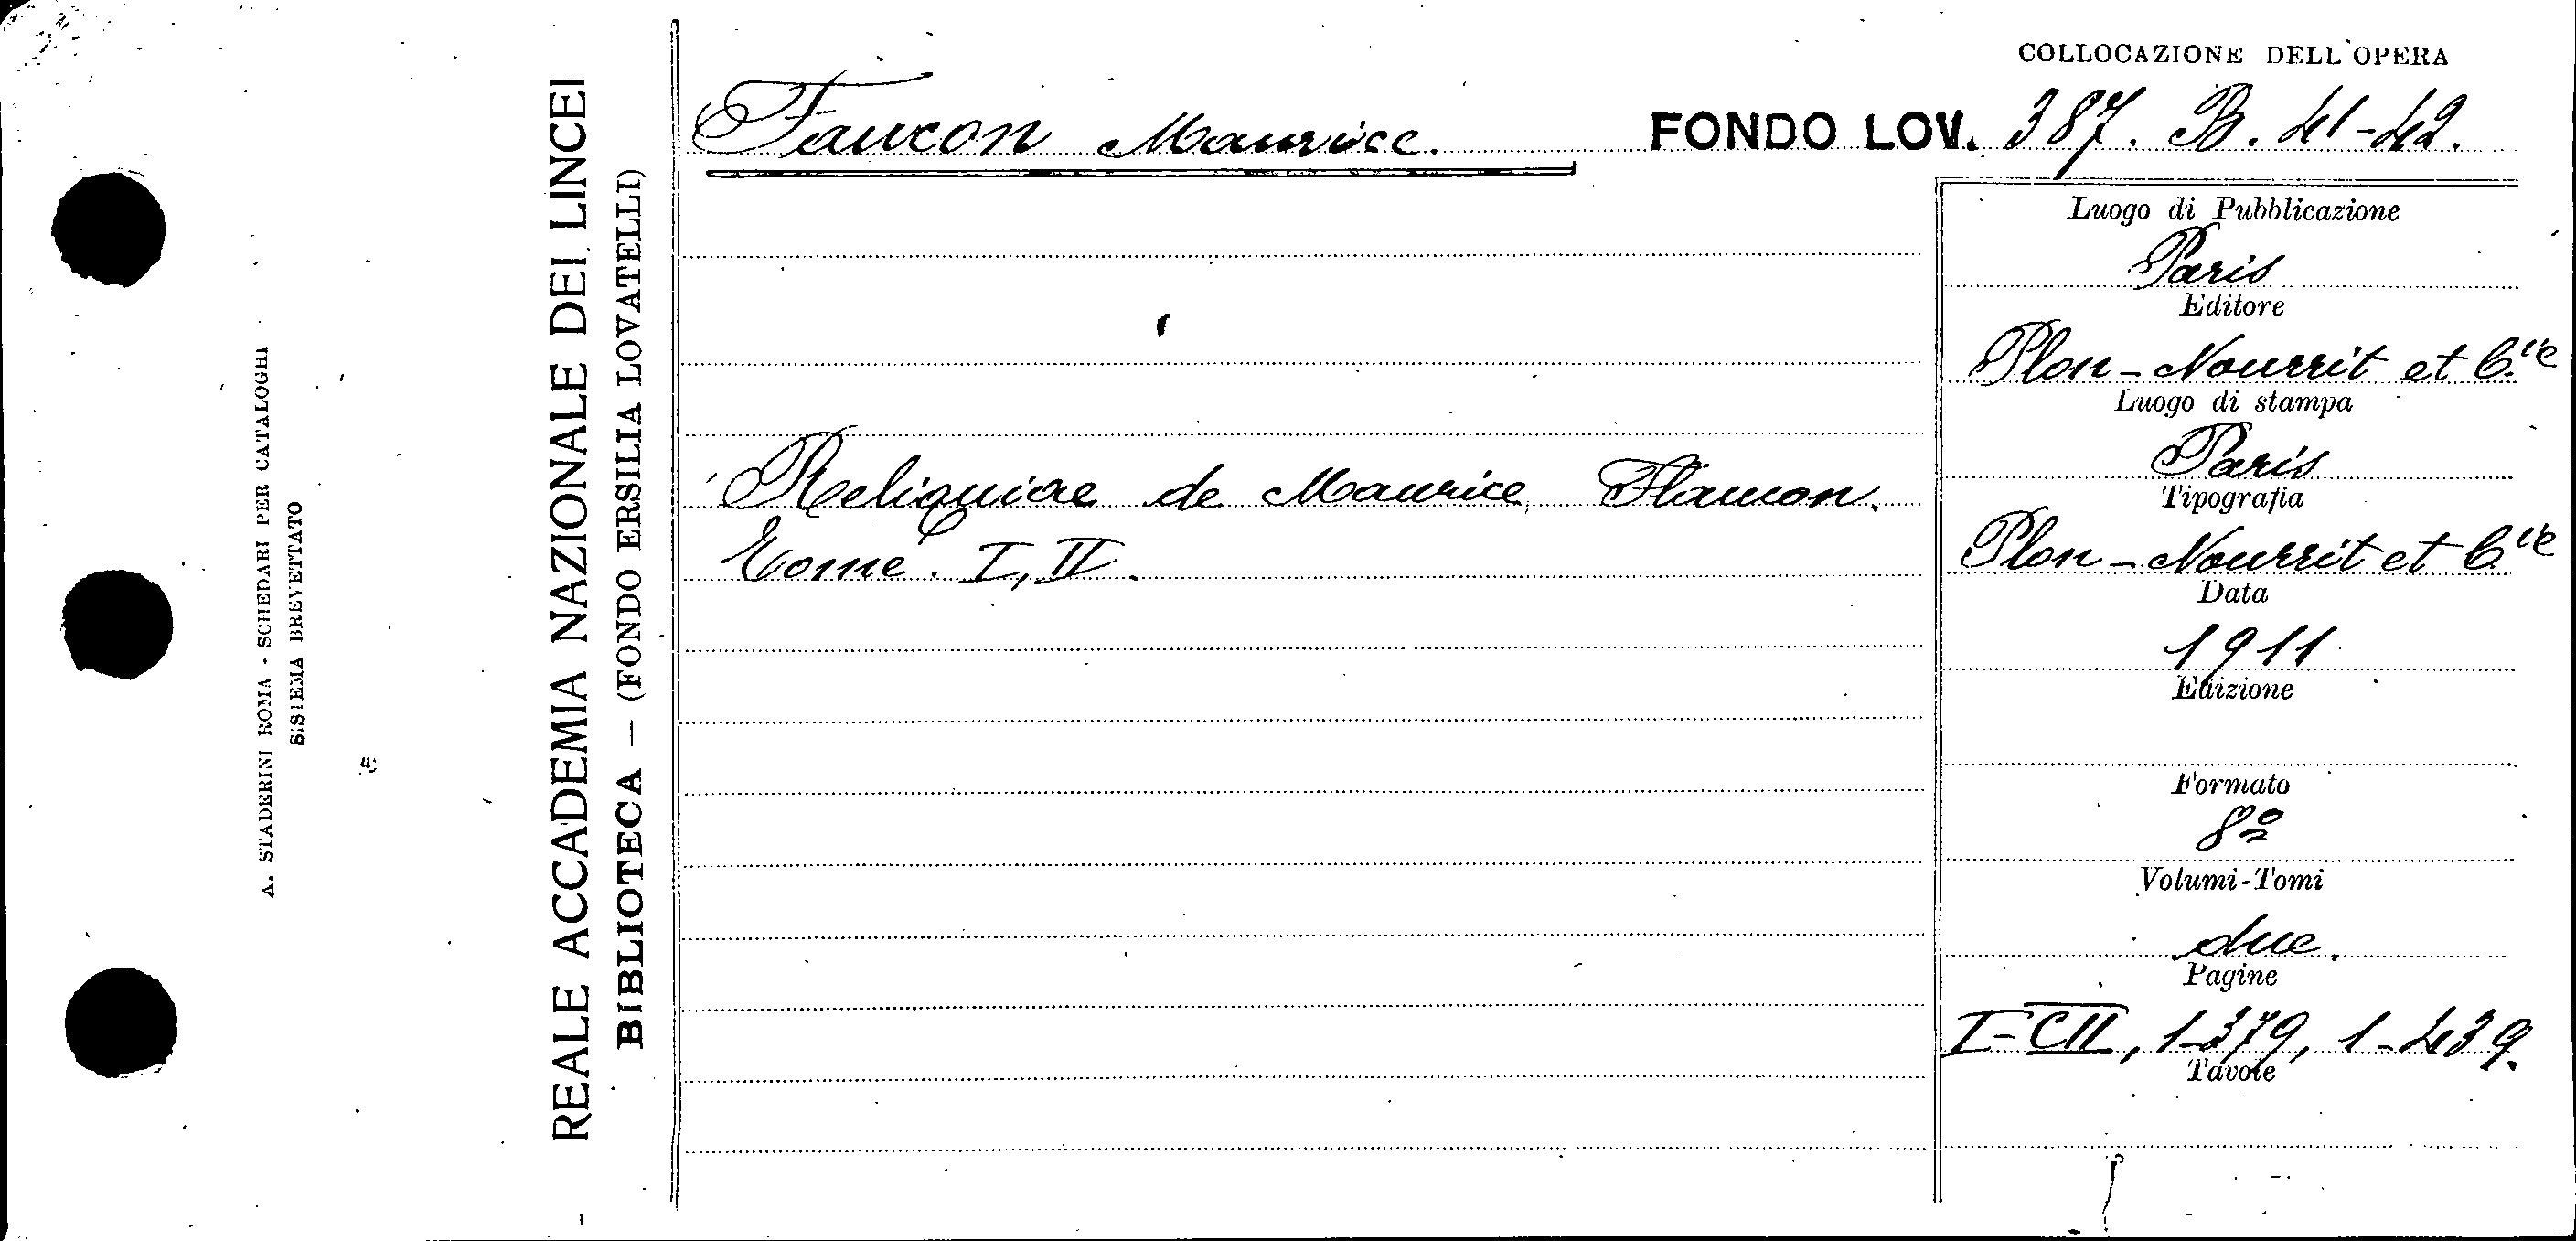 COLLOCAZIONE DELL'OPERA
Faucon Maurice. FONDO LOV. 387. B. 41-42.
Reliquiae de Maurice Flaucon.
Tome. I, II.
Luogo di Pubblicazione
Paris
Editore
Plon-Nourrit et C.ie
Luogo di stampa
Paris
Tipografia
Plon-Nourrit et C.ie
Data
1911
Edizione
Formato
8º
Volumi-Tomi
due.
Pagine
I-CII, 1-379, 1-439.
Tavole
REALE ACCADEMIA NAZIONALE DEI LINCEI
BIBLIOTECA — (FONDO ERSILIA LOVATELLI)
A. STADERINI ROMA - SCHEDARI PER CATALOGHI
SISTEMA BREVETTATO